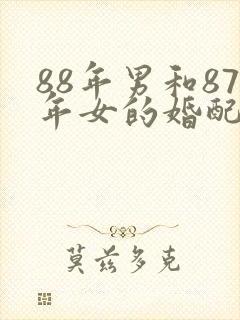 88年男和87
年女的婚配
莫兹多克